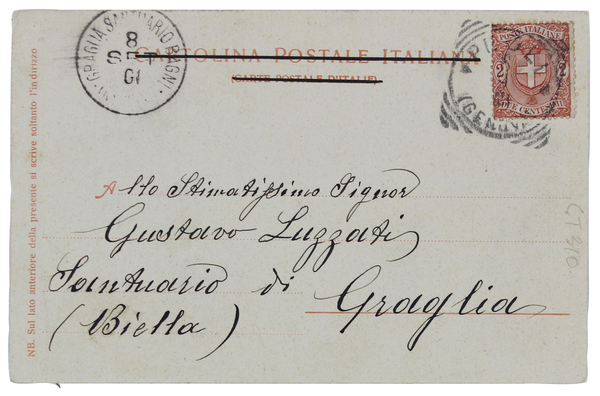 GRAGLIA SANTUARIO BAGNI
8
SET
01
CARTOLINA POSTALE ITALIANA
(CARTE POSTALE D'ITALIE)
POSTE ITALIANE
2 2
DUE CENTESIMI
(GENOVA)
Allo Stimatissimo Signor
Gustavo Luzzati
Santuario di Graglia
(Biella)
NB. Sul lato anteriore della presente si scrive soltanto l'indirizzo